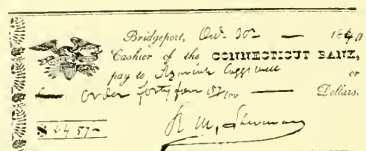 Bridgeport, Oct. 30th — 1840
Cashier of the CONNECTICUT BANK,
pay to or
order forty four 57/100 — Dollars.
$ 44 57 —
R. M. Sherman